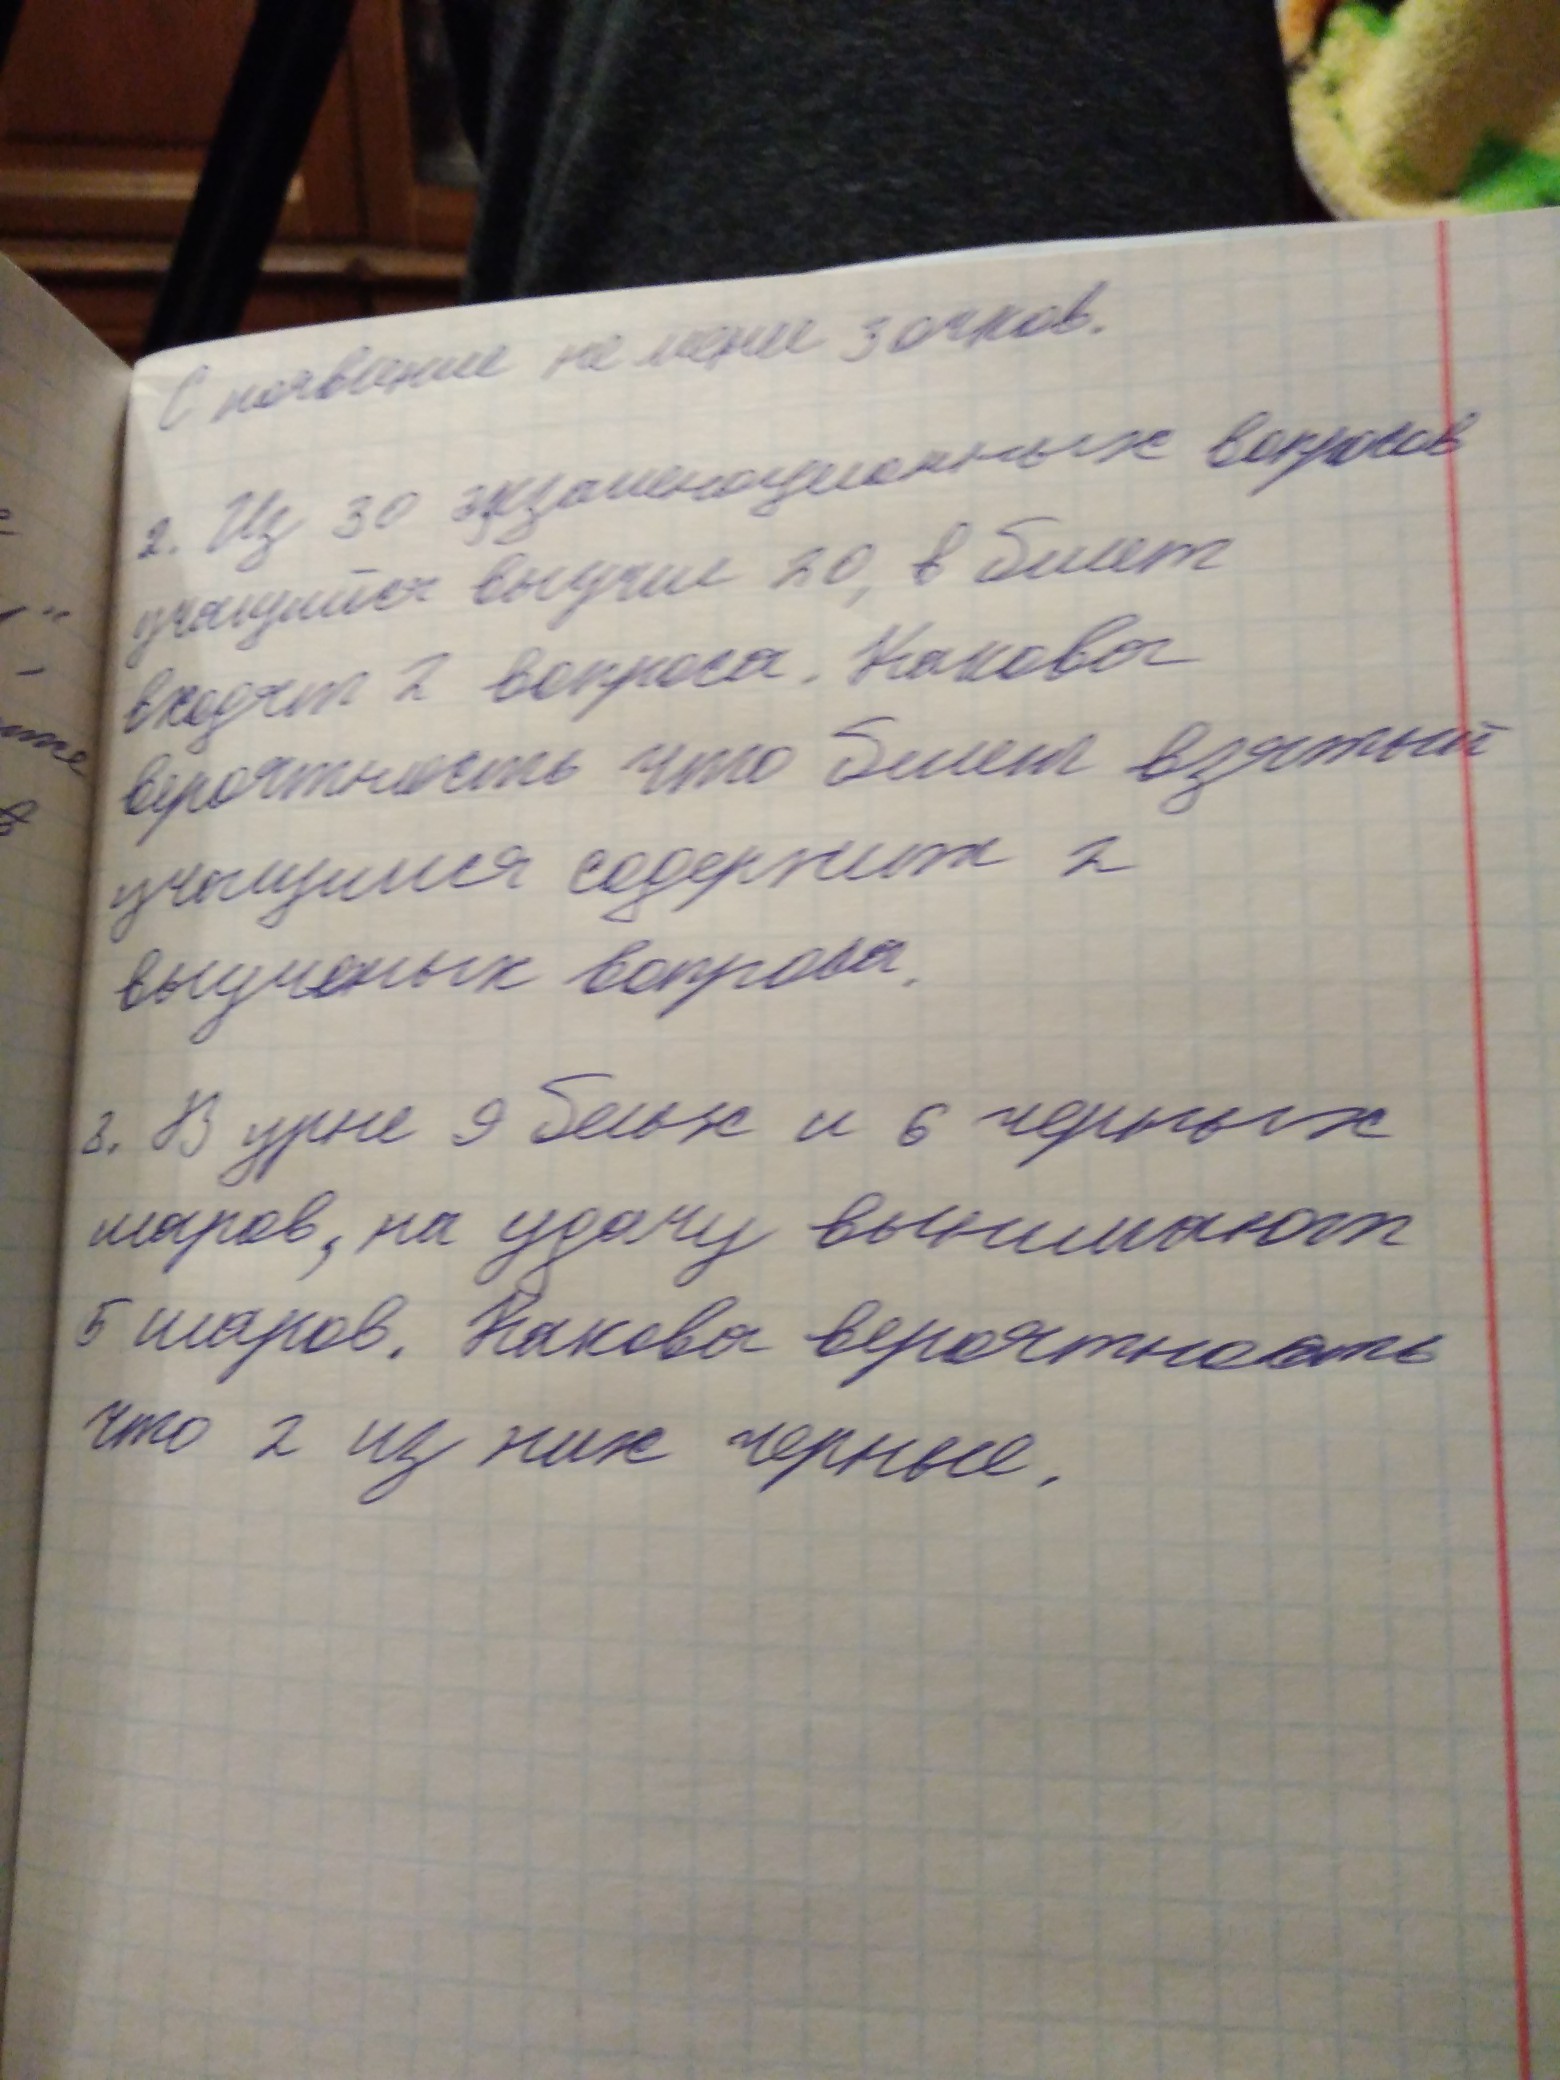 С появление не мение 3 очков.
2. Из 30 экзаменационных вопросов
учащийся выучил 20, в билет
входят 2 вопроса. Какова
вероятность что билет взятый
учащимся содержит 2
выученых вопроса.
3. В урне 9 белых и 6 черных
шаров, на удачу вынимают
5 шаров. Какова вероятность
что 2 из них черные.